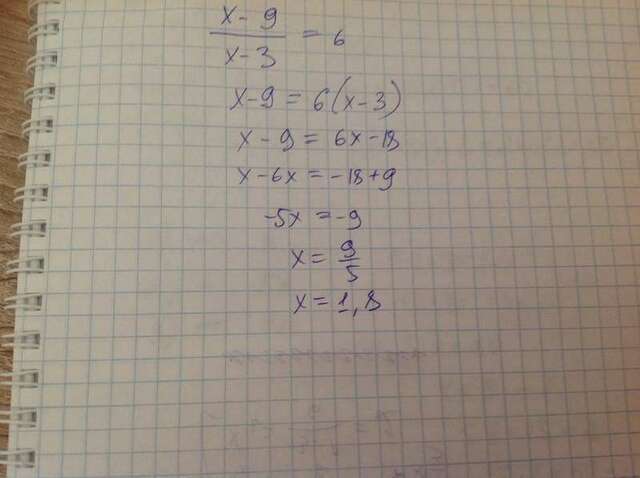 x - 9
x - 3 = 6
x - 9 = 6(x - 3)
x - 9 = 6x - 18
x - 6x = -18 + 9
-5x = -9
x = 9/5
x = 1,8